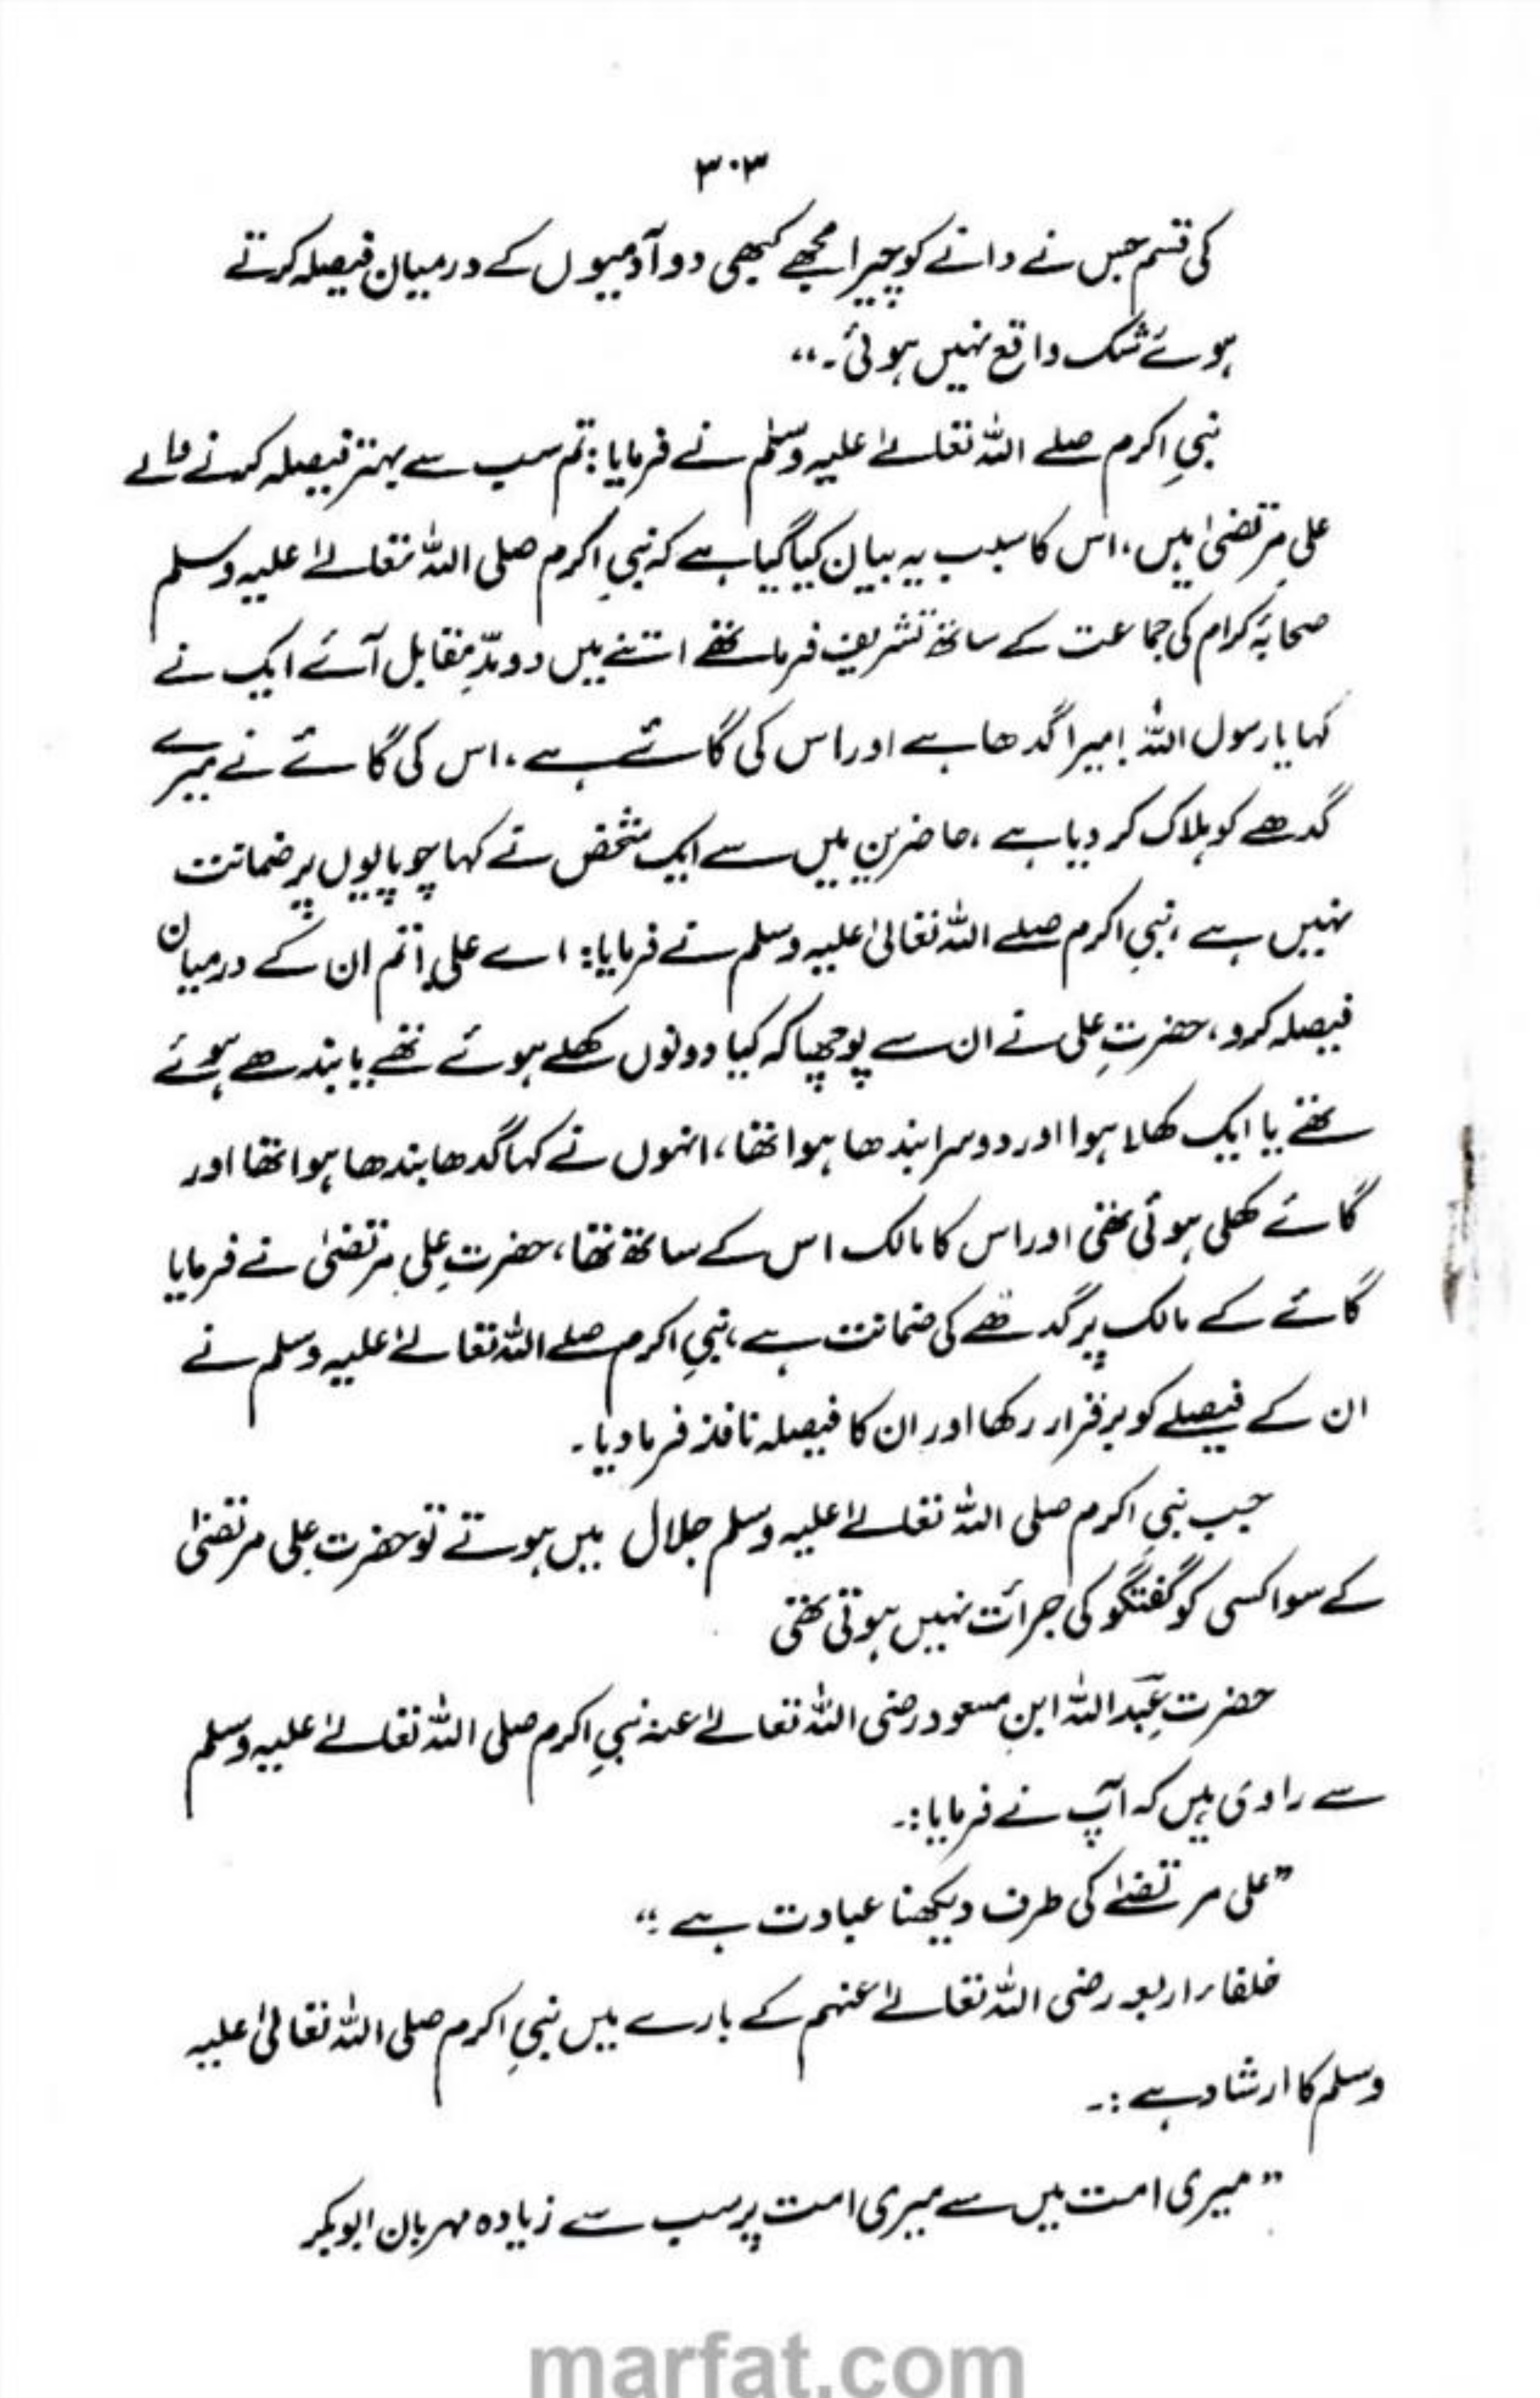 ۳۰۳
کی قسم جس نے دانے کو چیرا مجھے کبھی دو آدمیوں کے درمیان فیصلہ کرتے
ہوئے شک واقع نہیں ہوئی۔،،
نبیِ اکرم صلے اللہ تعالےٰ علیہ وسلم نے فرمایا: تم سب سے بہتر فیصلہ کرنے والے
علی مرتضیٰ ہیں، اس کا سبب یہ بیان کیا گیا ہے کہ نبیِ اکرم صلی اللہ تعالےٰ علیہ وسلم
صحابۂ کرام کی جماعت کے ساتھ تشریف فرما تھے اتنے میں دو مدِّ مقابل آئے ایک نے
کہا یا رسول اللہ! میرا گدھا ہے اور اس کی گائے ہے، اس کی گائے نے میرے
گدھے کو ہلاک کر دیا ہے، حاضرین میں سے ایک شخص نے کہا چوپایوں پر ضمانت
نہیں ہے، نبیِ اکرم صلے اللہ تعالیٰ علیہ وسلم نے فرمایا: اے علی! تم ان کے درمیان
فیصلہ کرو، حضرتِ علی نے ان سے پوچھا کہ کیا دونوں کھلے ہوئے تھے یا بندھے ہوئے
تھے یا ایک کھلا ہوا اور دوسرا بندھا ہوا تھا، انہوں نے کہا گدھا بندھا ہوا تھا اور
گائے کھلی ہوئی تھی اور اس کا مالک اس کے ساتھ تھا، حضرتِ علی مرتضیٰ نے فرمایا
گائے کے مالک پر گدھے کی ضمانت ہے، نبیِ اکرم صلے اللہ تعالےٰ علیہ وسلم نے
ان کے فیصلے کو برقرار رکھا اور ان کا فیصلہ نافذ فرما دیا۔
جب نبیِ اکرم صلی اللہ تعالےٰ علیہ وسلم جلال میں ہوتے تو حضرت علی مرتضیٰ
کے سوا کسی کو گفتگو کی جرأت نہیں ہوتی تھی
حضرت عبداللہ ابنِ مسعود رضی اللہ تعالےٰ عنہ نبیِ اکرم صلی اللہ تعالےٰ علیہ وسلم
سے راوی ہیں کہ آپ نے فرمایا:۔
”علی مرتضےٰ کی طرف دیکھنا عبادت ہے؛“
خلفاء اربعہ رضی اللہ تعالےٰ عنہم کے بارے میں نبیِ اکرم صلی اللہ تعالیٰ علیہ
وسلم کا ارشاد ہے:۔
”میری امت میں سے میری امت پر سب سے زیادہ مہربان ابوبکر
marfat.com